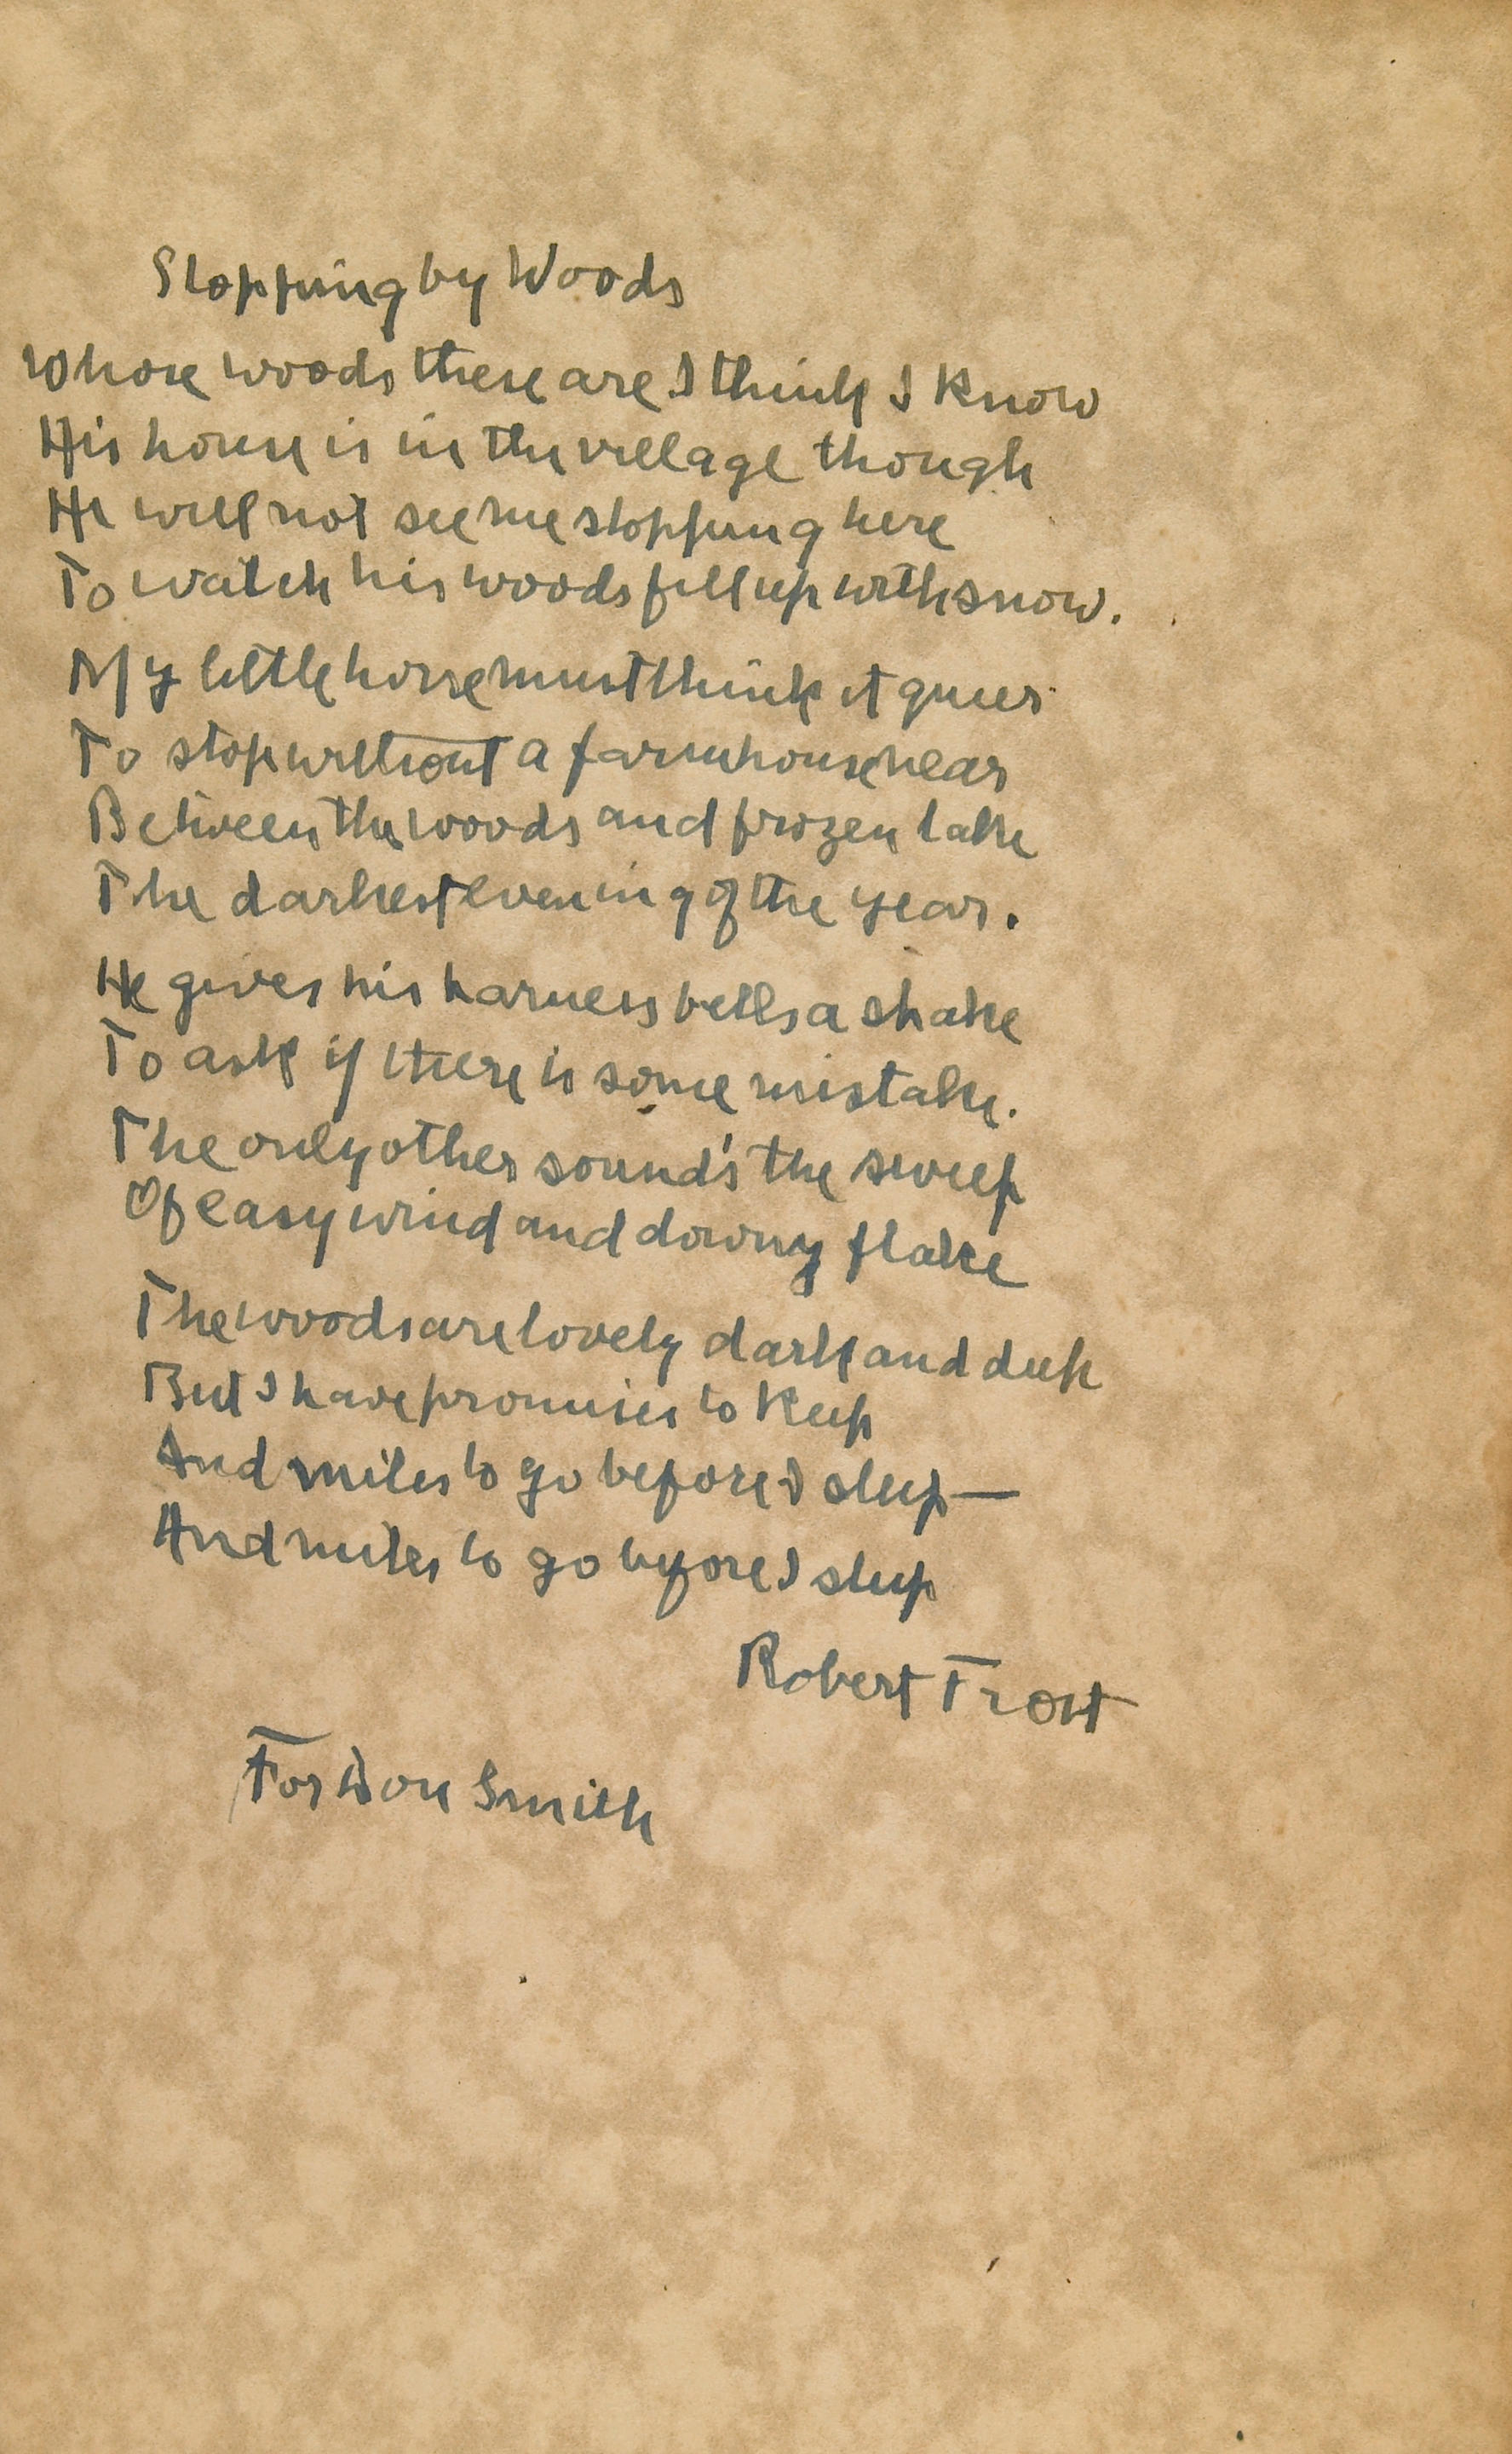 Stopping by Woods
Whose woods these are I think I know
His house is in the village though
He will not see me stopping here
To watch his woods fill up with snow.
My little horse must think it queer
To stop without a farmhouse near
Between the woods and frozen lake
The darkest evening of the year.
He gives his harness bells a shake
To ask if there is some mistake.
The only other sound's the sweep
Of easy wind and downy flake
The woods are lovely dark and deep
But I have promises to keep
And miles to go before I sleep—
And miles to go before I sleep
Robert Frost
For Don Smith